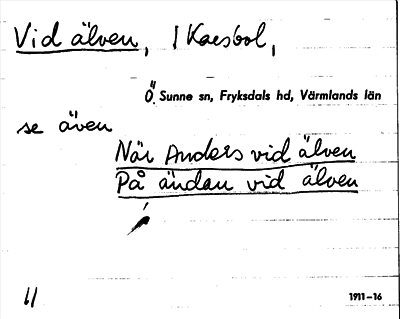 Vid älven, 1 Kaesbol,
Ö. Sunne sn, Fryksdals hd, Värmlands län
se även
När Anders vid älven
På ändan vid älven
1911-16